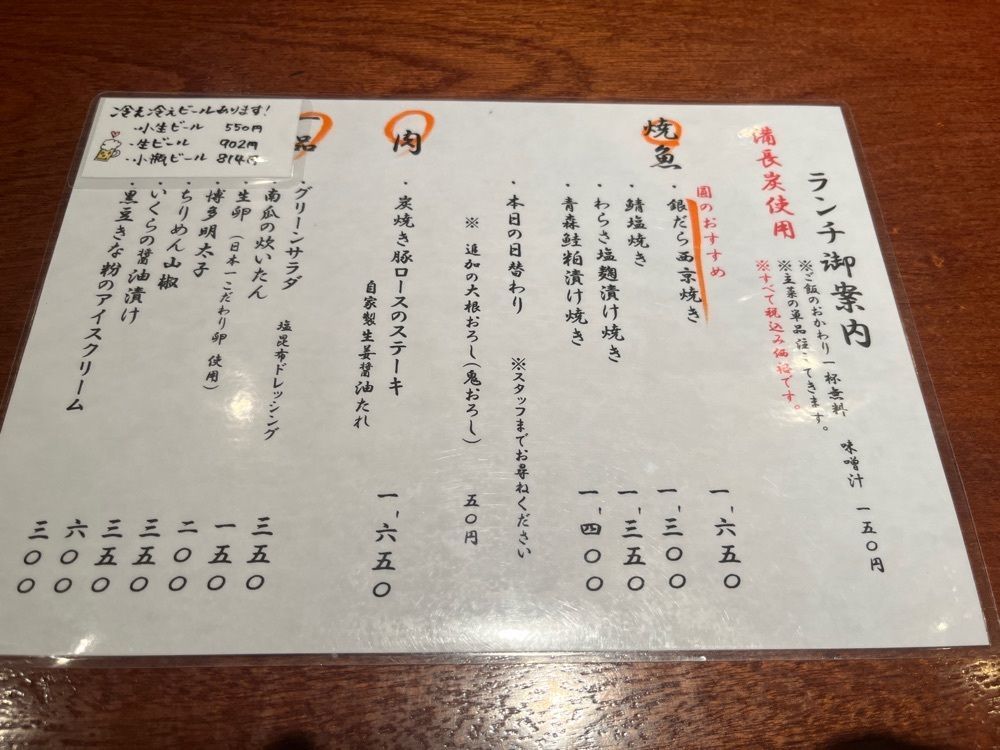 ランチ御案内
備長炭使用
※ご飯のおかわり一杯無料　味噌汁　一五〇円
※主菜の単品注文できます。
※すべて税込み価格です。
焼魚
圓のおすすめ
・銀だら西京焼き　一、六五〇
・鯖塩焼き　一、三〇〇
・わらさ塩麹漬け焼き　一、三五〇
・青森鮭粕漬け焼き　一、四〇〇
・本日の日替わり　※スタッフまでお尋ねください
※ 追加の大根おろし(鬼おろし)　五〇円
肉
・炭焼き豚ロースのステーキ　一、六五〇
自家製生姜醤油たれ
一品
・グリーンサラダ　塩昆布ドレッシング　三五〇
・南瓜の炊いたん　一五〇
・生卵(日本一こだわり卵 使用)　二〇〇
・博多明太子　三五〇
・ちりめん山椒　三五〇
・いくらの醤油漬け　六〇〇
・黒豆きな粉のアイスクリーム　三〇〇
冷え冷えビールあります!
・小生ビール 550円
・生ビール 902円
・小瓶ビール 814円